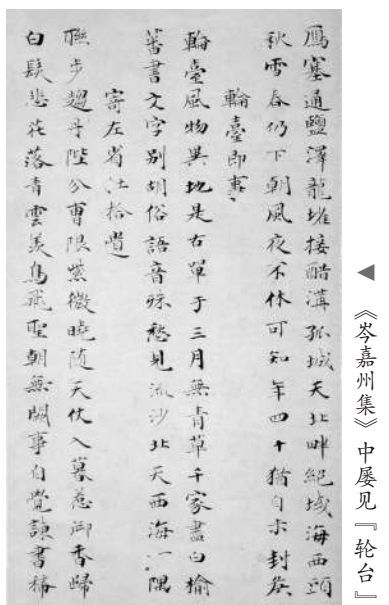 鴈塞通鹽澤龍堆接醋溝孤城天北畔絕域海西頭
秋雪春仍下朝風夜不休可知年四十猶自未封矦
輪臺即事
輪臺風物異地是古單于三月無青草千家盡白榆
蕃書文字別胡俗語音殊愁見流沙北天西海一隅
寄左省杜拾遺
聯步趨丹陛分曹限紫微曉随天仗入暮惹御香歸
白髮悲花落青雲羨鳥飛聖朝無闕事自覺諫書稀
《岑嘉州集》中屡见『轮台』